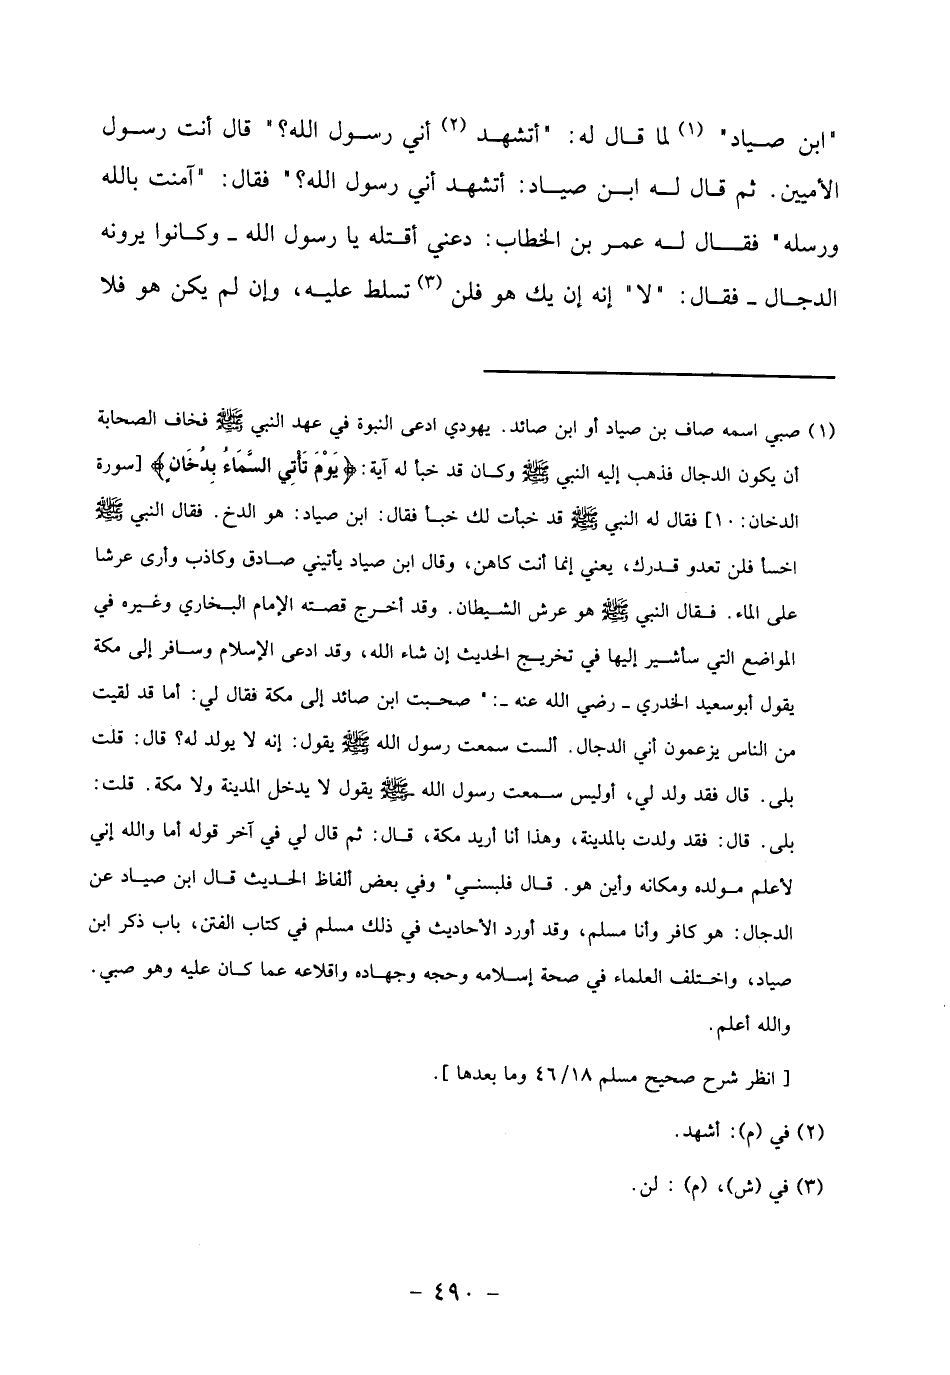 "ابن صياد" (١) لما قال له: "أتشهد (٢) أني رسول الله؟" قال أنت رسول
الأميين. ثم قال له ابن صياد: أتشهد أني رسول الله؟" فقال: "آمنت بالله
ورسله" فقال له عمر بن الخطاب: دعني أقتله يا رسول الله ـ وكانوا يرونه
الدجال ـ فقال: "لا" إنه إن يك هو فلن (٣) تسلط عليه، وإن لم يكن هو فلا
(١) صبي اسمه صاف بن صياد أو ابن صائد. يهودي ادعى النبوة في عهد النبي ﷺ فخاف الصحابة
أن يكون الدجال فذهب إليه النبي ﷺ وكان قد خبأ له آية: ﴿يَوْمَ تَأْتِي السَّمَاءُ بِدُخَانٍ﴾ [سورة
الدخان: ١٠] فقال له النبي ﷺ قد خبأت لك خبأ فقال: ابن صياد: هو الدخ. فقال النبي ﷺ
اخسأ فلن تعدو قدرك، يعني إنما أنت كاهن، وقال ابن صياد يأتيني صادق وكاذب وأرى عرشا
على الماء. فقال النبي ﷺ هو عرش الشيطان. وقد أخرج قصته الإمام البخاري وغيره في
المواضع التي سأشير إليها في تخريج الحديث إن شاء الله، وقد ادعى الإسلام وسافر إلى مكة
يقول أبوسعيد الخدري ـ رضي الله عنه ـ: " صحبت ابن صائد إلى مكة فقال لي: أما قد لقيت
من الناس يزعمون أني الدجال. ألست سمعت رسول الله ﷺ يقول: إنه لا يولد له؟ قال: قلت
بلى. قال فقد ولد لي، أوليس سمعت رسول الله ﷺ يقول لا يدخل المدينة ولا مكة. قلت:
بلى. قال: فقد ولدت بالمدينة، وهذا أنا أريد مكة، قال: ثم قال لي في آخر قوله أما والله إني
لأعلم مولده ومكانه وأين هو. قال فلبسني" وفي بعض ألفاظ الحديث قال ابن صياد عن
الدجال: هو كافر وأنا مسلم، وقد أورد الأحاديث في ذلك مسلم في كتاب الفتن، باب ذكر ابن
صياد، واختلف العلماء في صحة إسلامه وحجه وجهاده واقلاعه عما كان عليه وهو صبي.
والله أعلم.
[ انظر شرح صحيح مسلم ٤٦/١٨ وما بعدها ].
(٢) في (م): أشهد.
(٣) في (ش)، (م) : لن.
- ٤٩٠ -